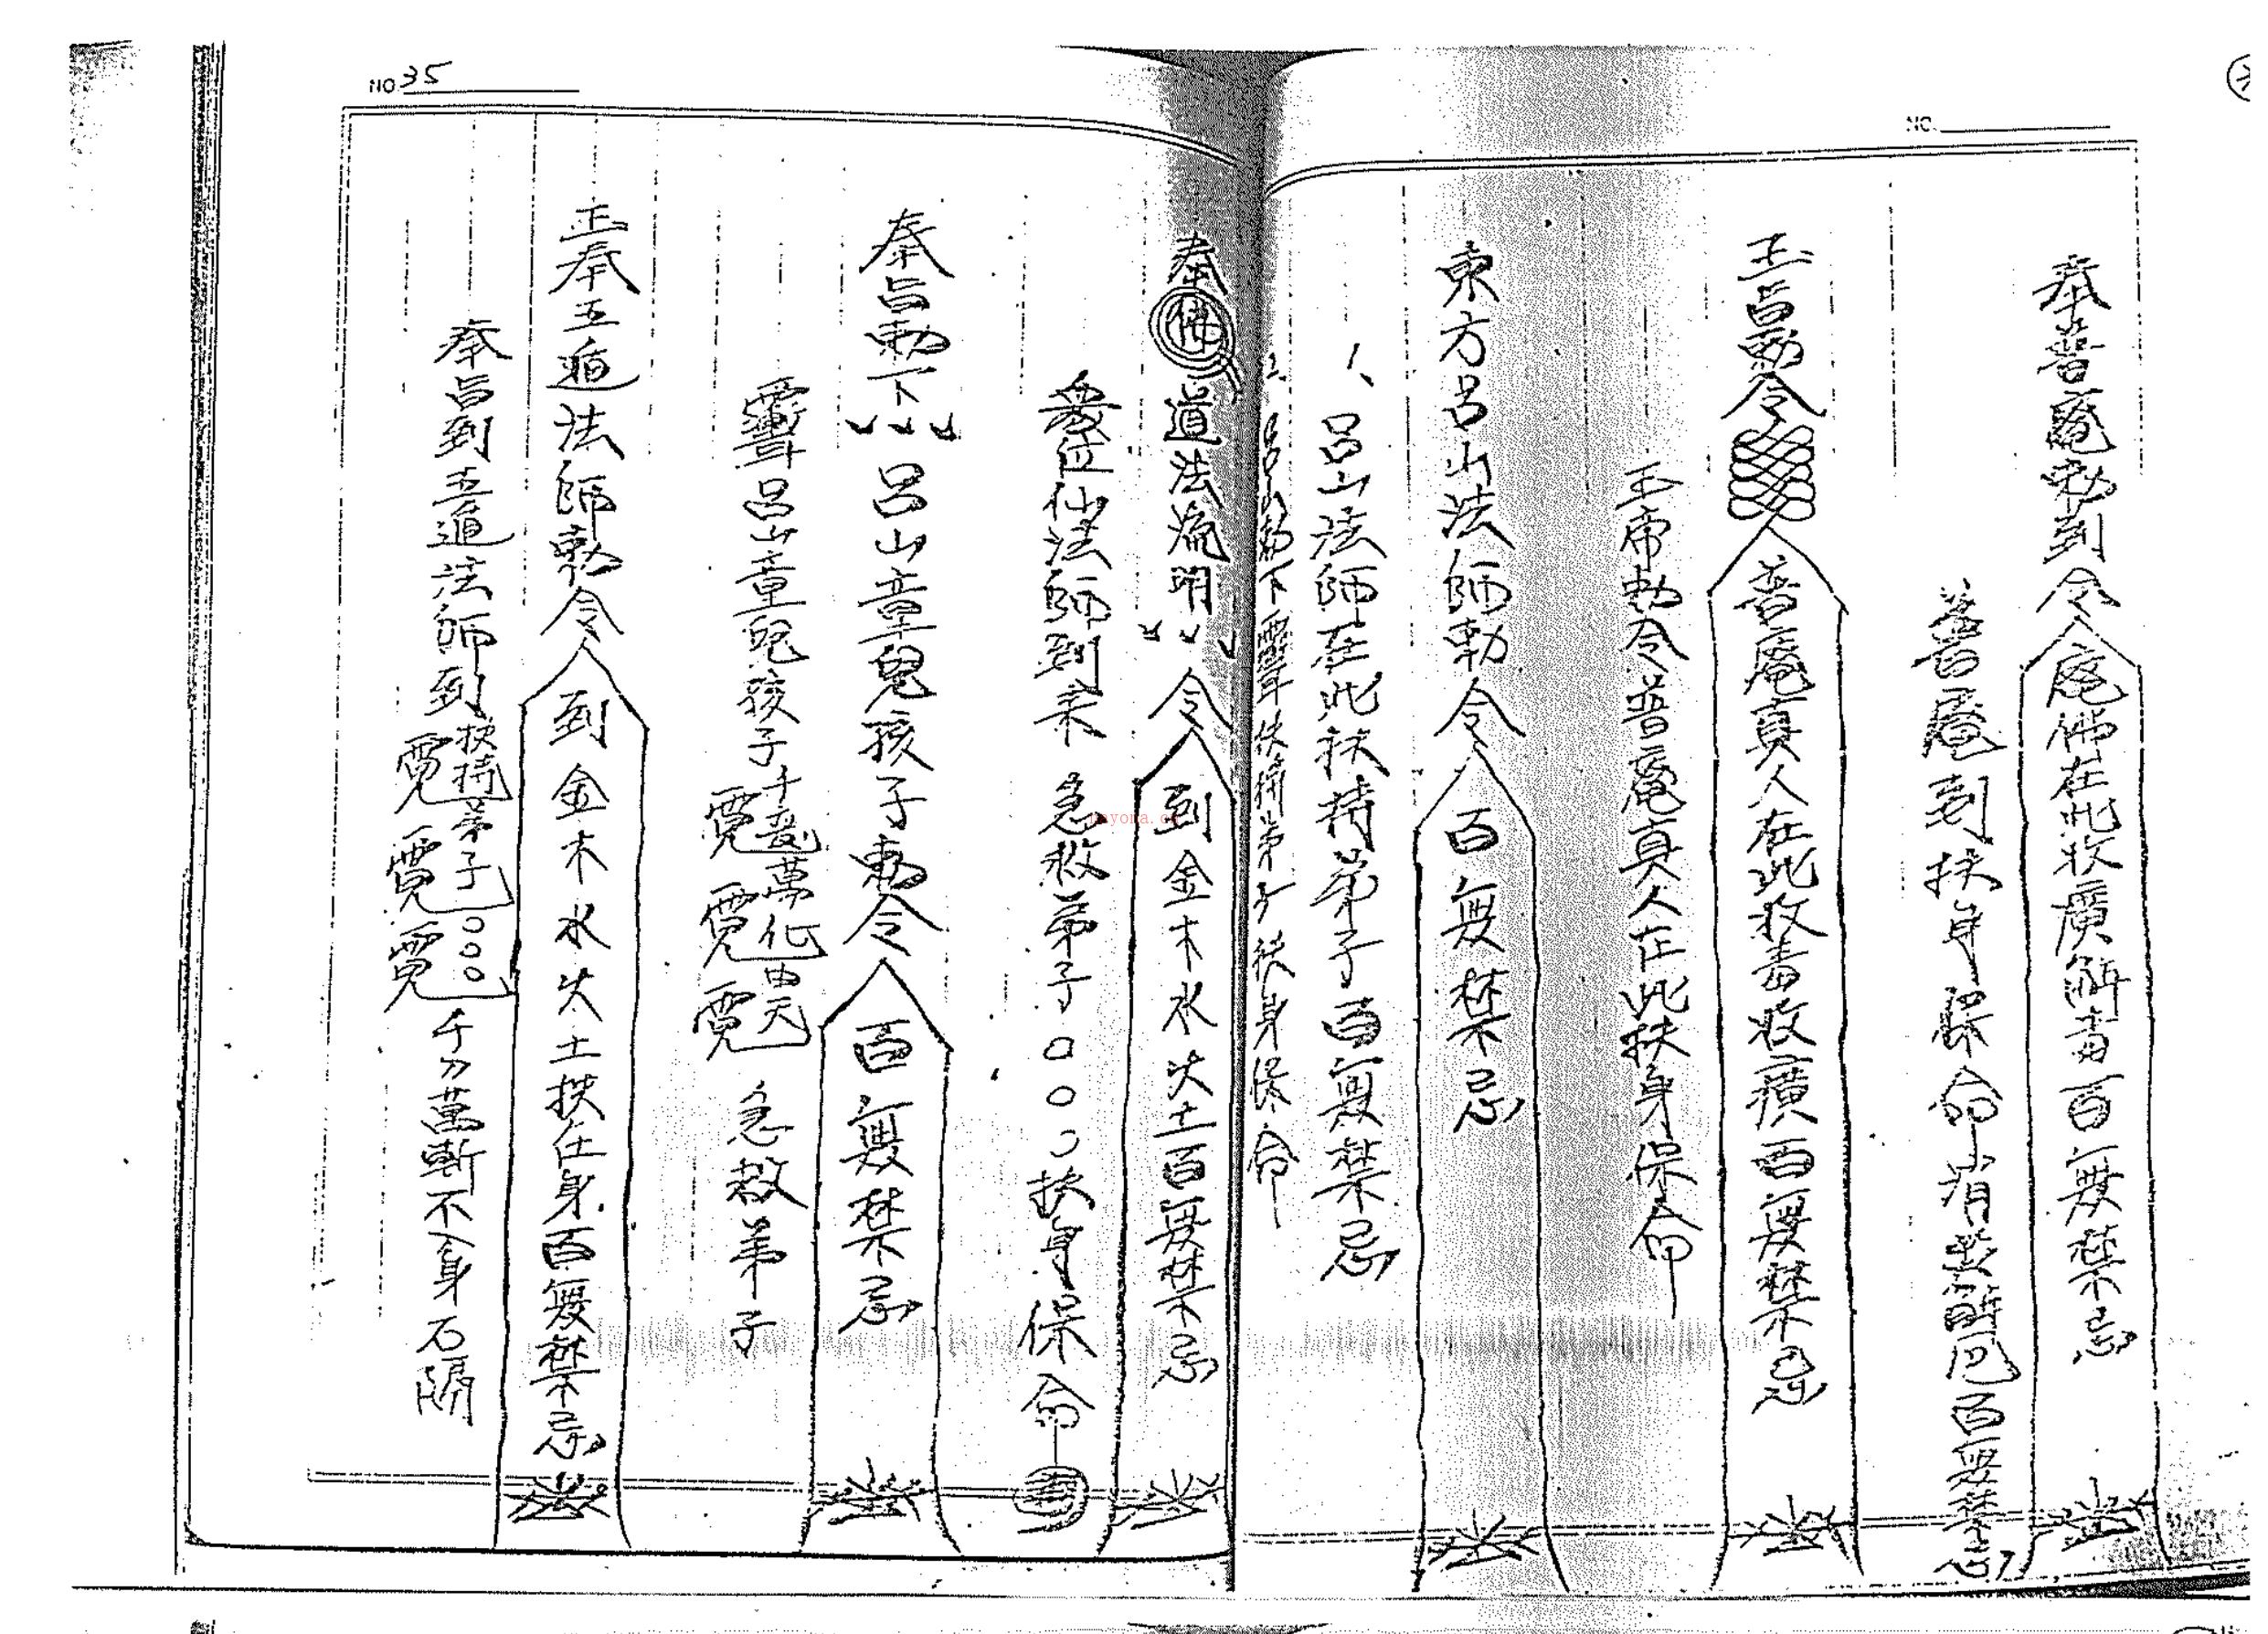 NO.
奉普庵勅到令庵佛在此收廣解毒百無禁忌
普庵到扶身保命消災解厄百無禁忌
玉旨勅令普庵真人在此收毒收癀百無禁忌
玉帝勅令普庵真人在此扶身保命
東方呂山法師勅令百無禁忌
1、呂山法師在此扶持弟子百無禁忌
2、呂山勅下靈扶持弟子扶身保命
NO 35
奉佛道法流明令到金木水火土百無禁忌
眾位仙法師到來急救弟子○○○扶身保命
奉旨勅下呂山童兒孩子勅令百無禁忌
呂山童兒孩子千變萬化急救弟子
玉奉五遁法師勅令到金木水火土扶在身百無禁忌
奉旨到五遁法師到扶持弟子○○○千刀萬斬不入身石隔